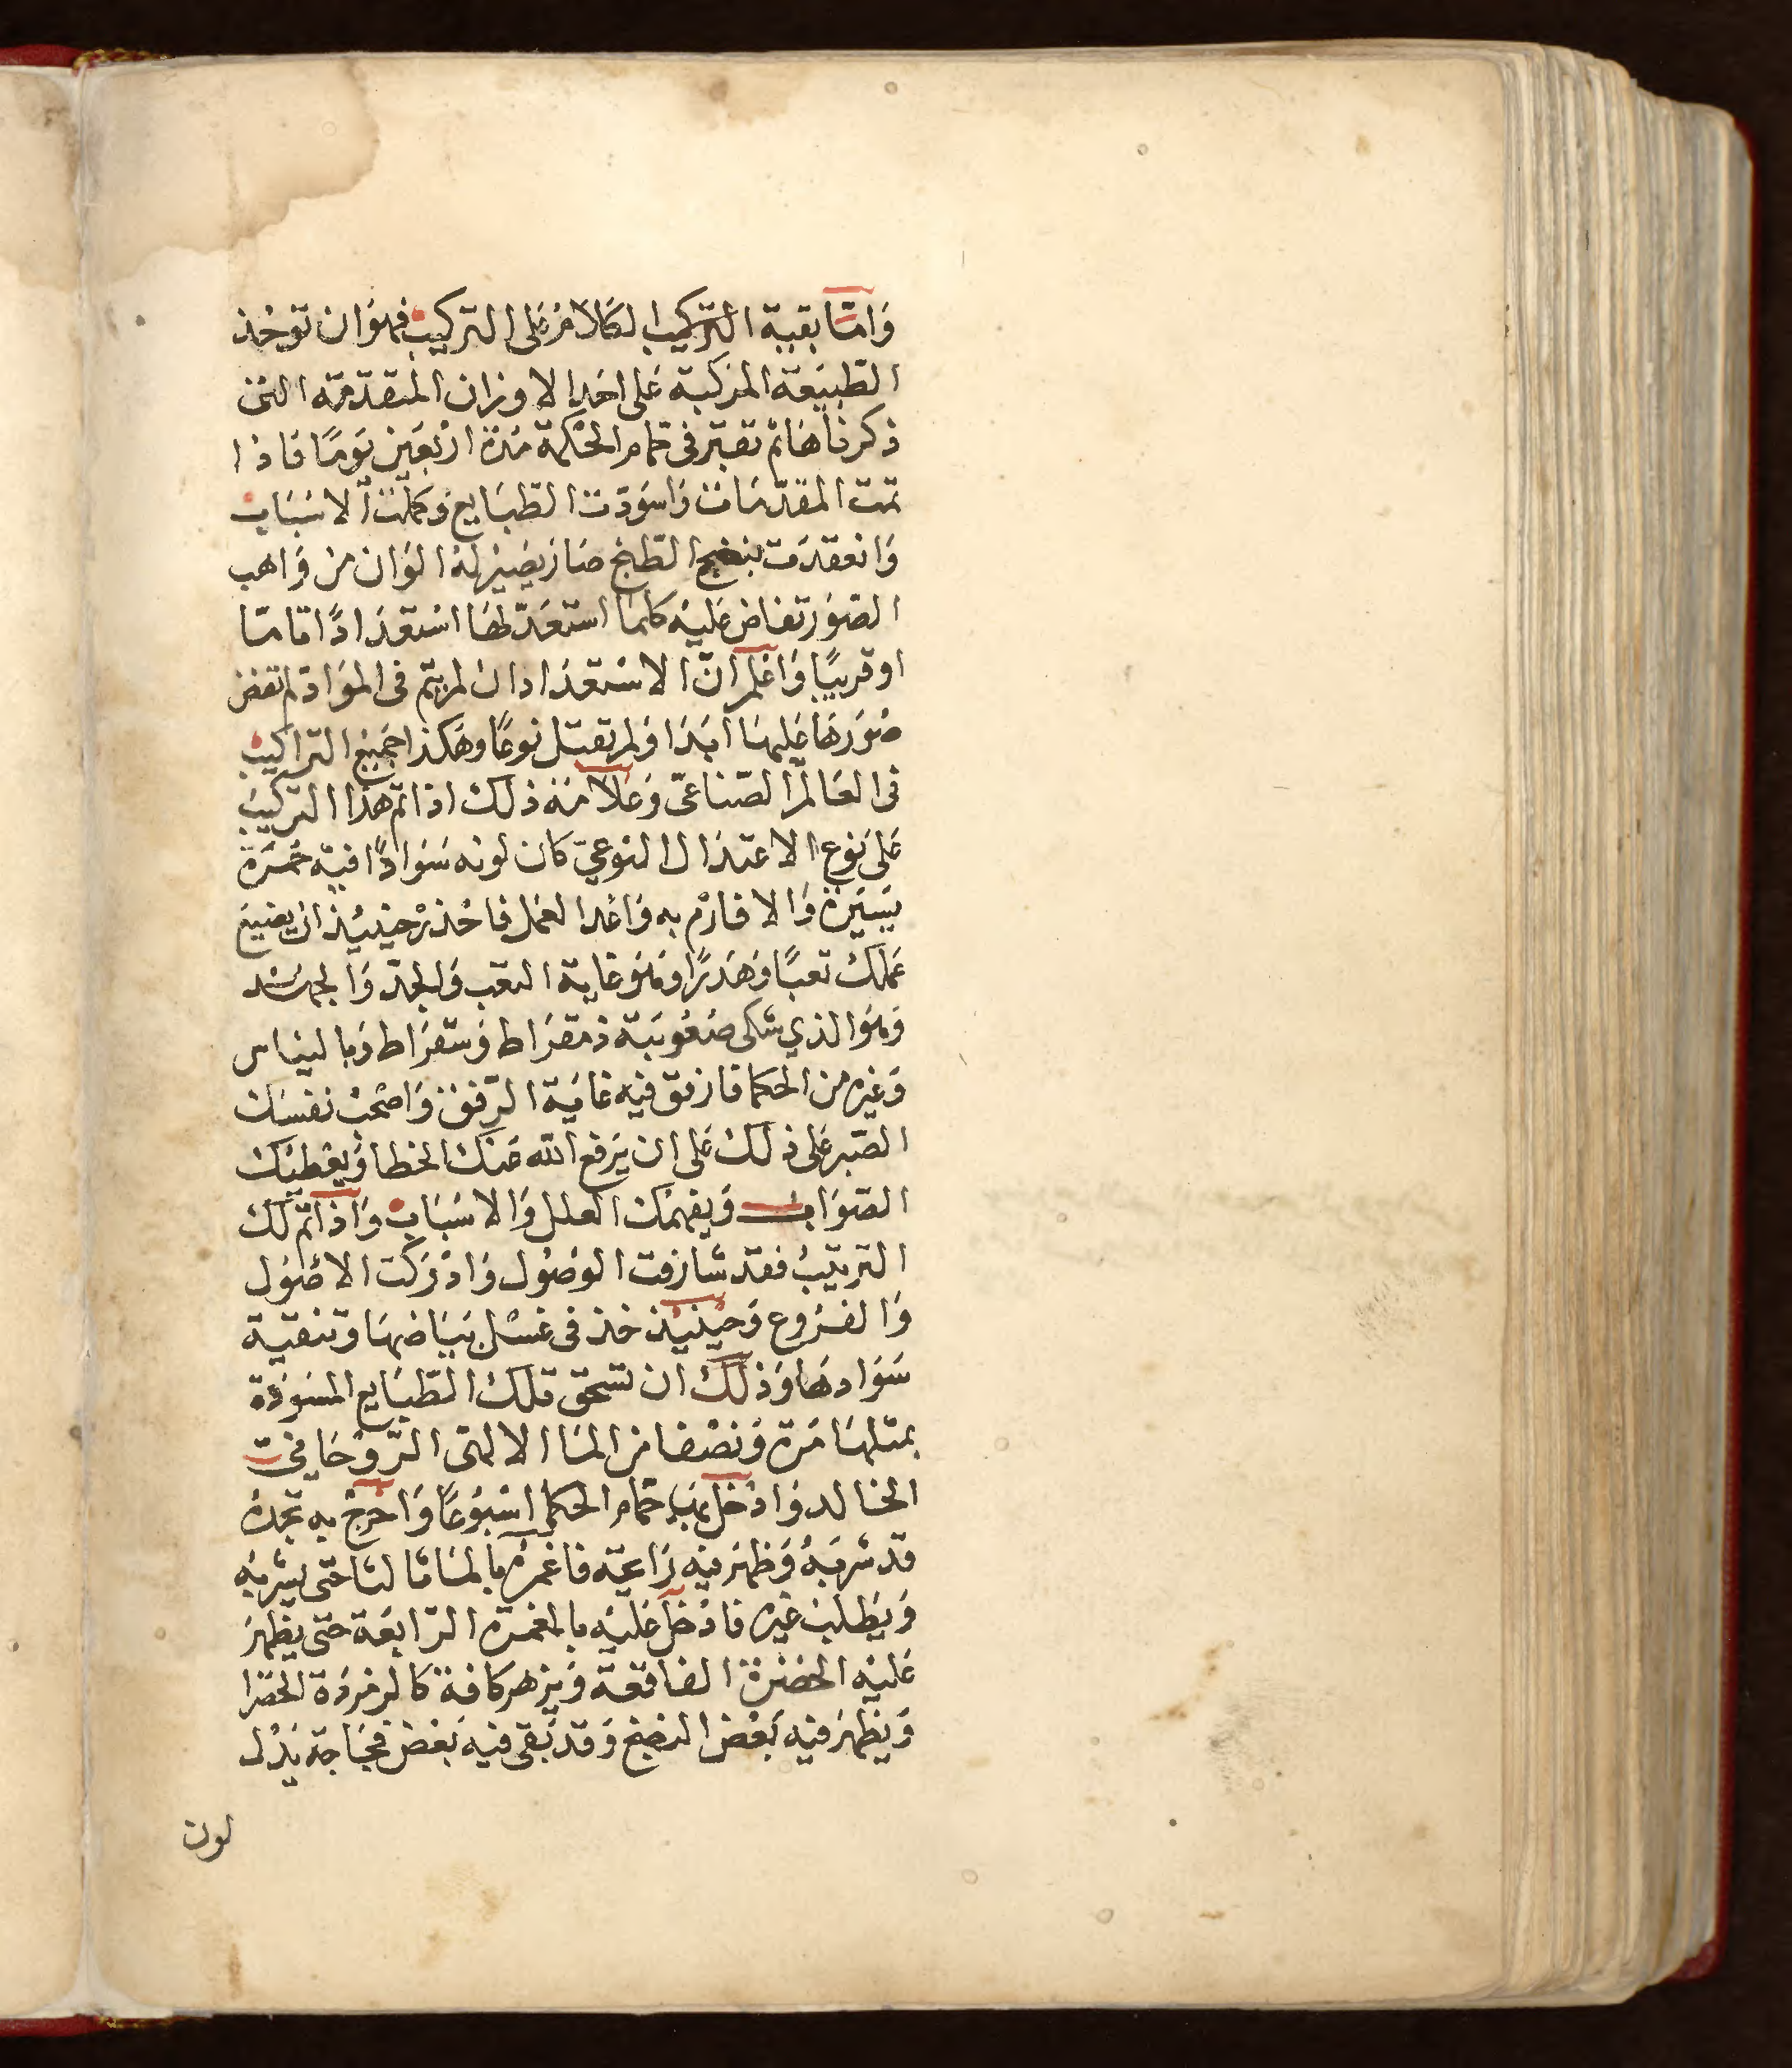 وَامّا بقية التركيب الكَلامُ عَلى التركيب فهوَ ان توخذ
الطبيعَة المرَكبة عَلى احَد الاوزان المتقدّمَة التى
ذكرناهَا ثم تقبّر فى حمام الحكمة مدَة ارْبَعين يَومًا فاذا
تمت المقدّمات وَاسوَدّت الطبَايع وَكملت الاسبَاب
وَانعقدَت بنضج الطبخ صَار يَصير لهُ الوَان من وَاهب
الصوَر تفاض عَليْه كلما استعَدّ لهَا اسْتعدَادًا تامّا
او قريبًا وَاعْلم انّ الاسْتعدَاد ان لم يتم فى الموَاد لم تفض
صُوَرهَا عَليهَا ابَدَا وَلم تقبَل نوعًا وهَكذا جَميْع التراكيب
فى العَالم الصّناعىّ وَعَلامَة ذلك اذا تم هَذا التركيب
عَلى نوع الاعتدَال النوعيّ كان لونه سَوَادًا فيْه حُمْرَة
يَسيْرَة وَالا فارْم به وَاعْد العَمل فاحْذرْ حينيْذ ان يضيع
عَملك تعبًا وَهَدرًا وَهوَ غاية التعَب وَالجدّ وَالجهْد
وَهوَ الذي شكى صُعُوبَة ذمقرَاط وَسقرَاط وَبالينَاس
وَغيره من الحكما فارفق فيْه غايَة الرّفق وَاصْحبْ نفسَك
الصّبر عَلى ذلك عَلى ان يَرفع الله عَنك الخطا وَيعْطيْك
الصّوَاب وَيفهمَك العلل وَالاسبَاب وَاذا تم لك
الترتيْبُ فقد شارَفت الوُصُول وَادْرَكت الاصُول
وَالفرُوع وَحيْنيْذ خذ فى غسْل بَيَاضهَا وتنقيَة
سَوَادهَا وَذلك ان تسْحَق تلك الطّبَايع المسوَدّة
بمثلهَا مَرة وَنصْفا من المَا الالهى الرّوحَانيّ
الخالد وَادْخل بهَا حمّام الحكما اسْبُوعًا وَاخْرجْ به تجدهُ
قد شربَهُ وَظهَر فيه رَاعيّه فاغمرْه بالمَا ثالثا حَتى يشرَبه
وَيَطلبُ غيره فادْخل عَليْه بالغمرة الرّابعَة حَتى يظهرَ
عَليْه الخضرَة الفاقعَة وَيزهر كافة كالزمردَة الخضرا
وَيظهرَ فيْه بَعْض النضج وَقد بَقى فيه بَعْض فجَاجة يَدُل
لون